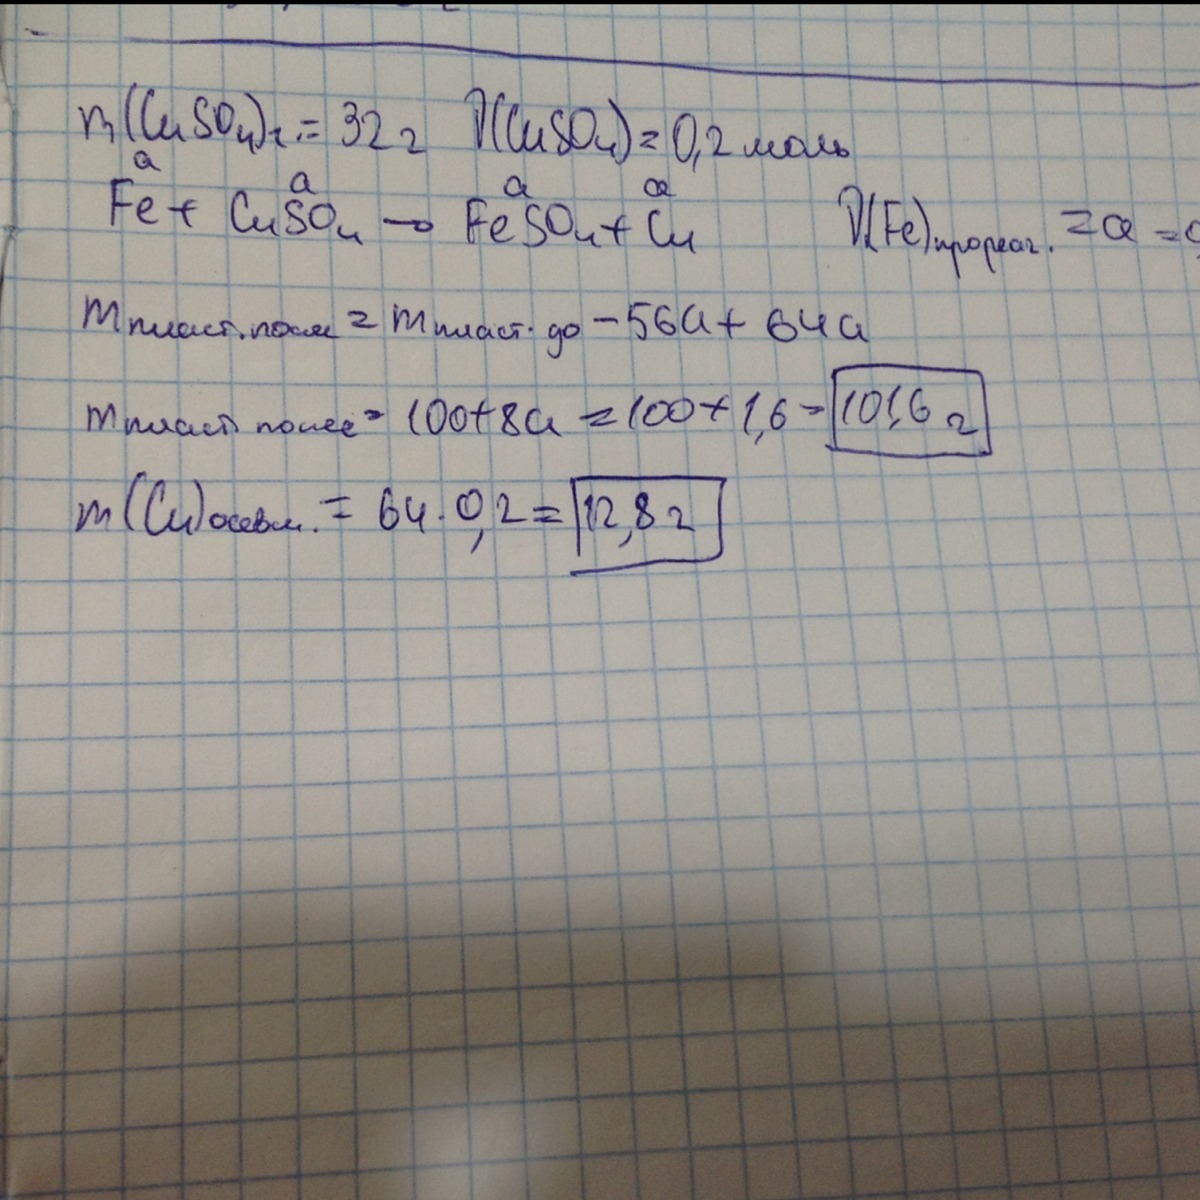 m(CuSO₄)₂ = 32 г ν(CuSO₄) = 0,2 моль
a a a a
Fe + CuSO₄ → FeSO₄ + Cu ν(Fe)прореаг. = a =
mпласт.после = mпласт.до − 56a + 64a
mпласт после = 100 + 8a = 100 + 1,6 = 101,6 г
m(Cu) = 64 · 0,2 = 12,8 г